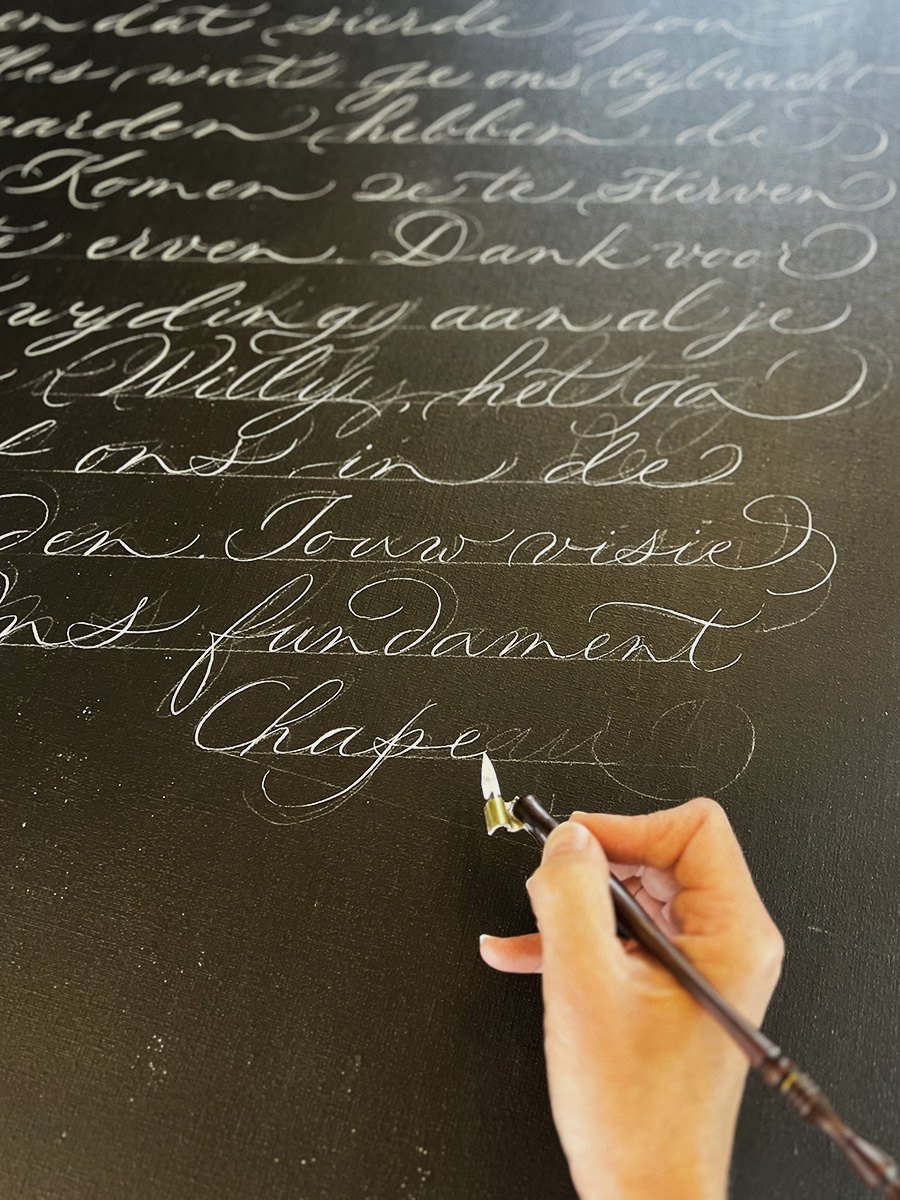 en dat sierde jou
lles wat je ons bybracht
aarden hebben de
Komen ze te sterven
te erven. Dank voor
wyding aan al je
Willy, het ga
ons in de
den. Jouw visie
ons fundament
Chapeau